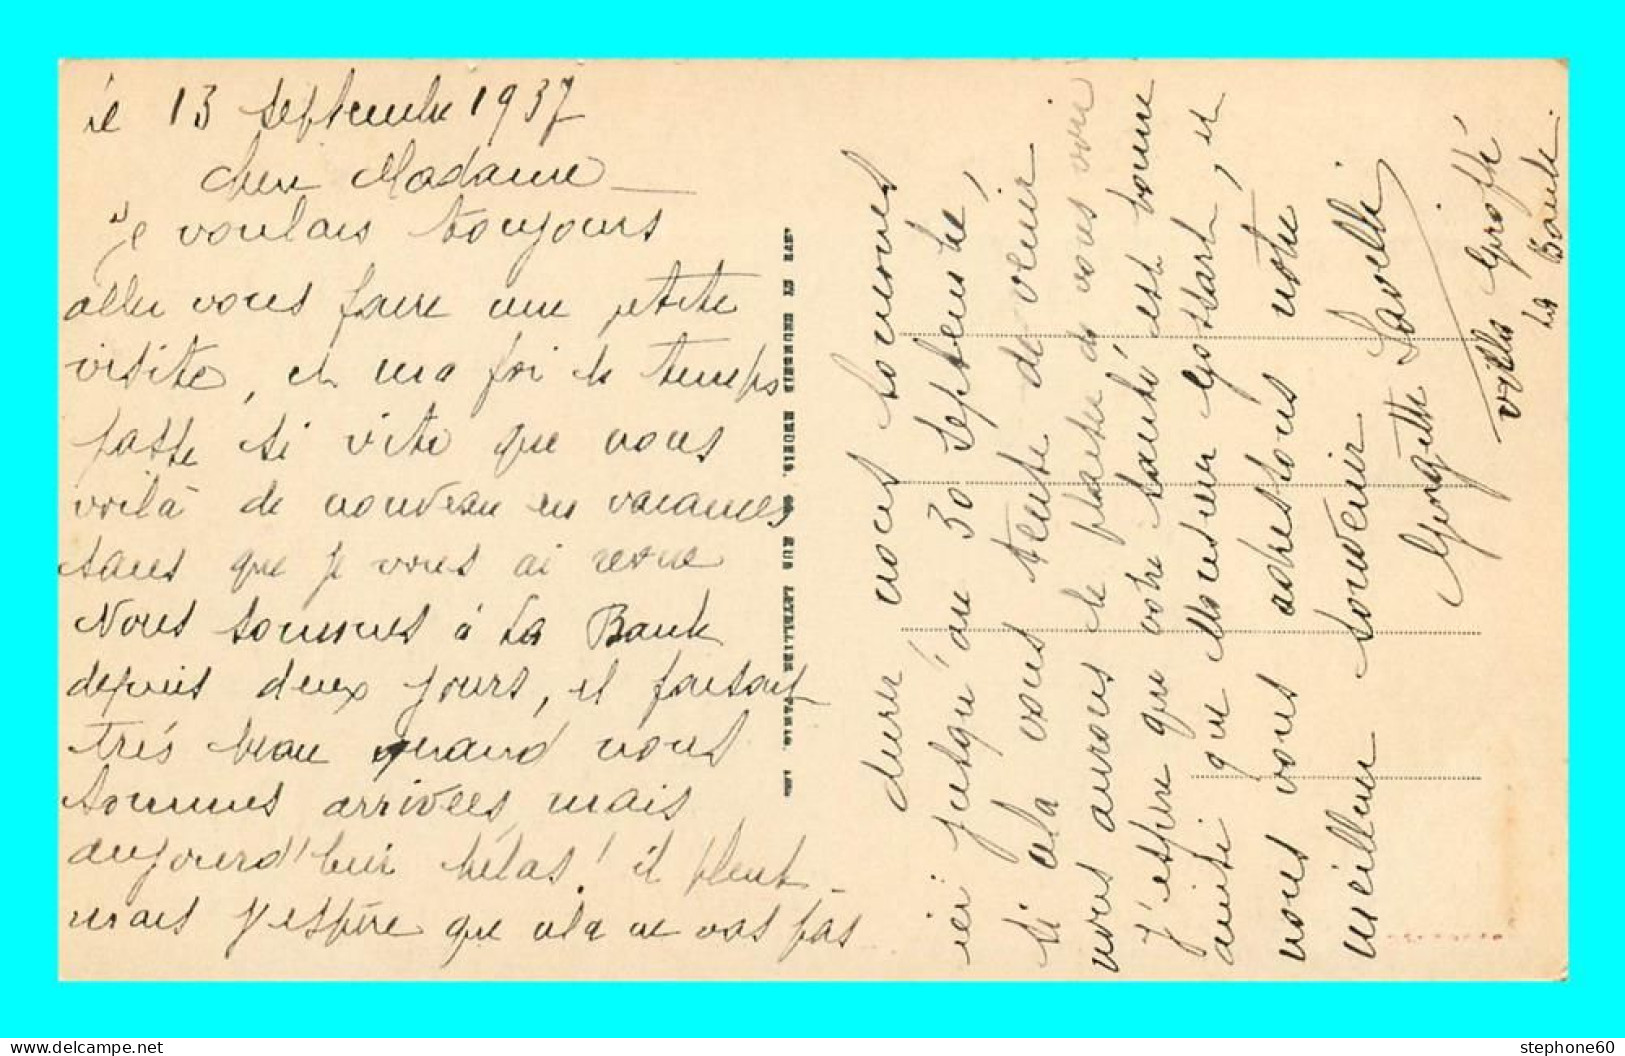 le 13 septembre 1937
Chère Madame
Je voulais toujours
aller vous faire une petite
visite, et ma foi le temps
passe si vite que nous
voilà de nouveau en vacances
sans que je vous ai revue
Nous sommes à La Baule
depuis deux jours, il faisait
très beau quand nous
sommes arrivées, mais
aujourd'hui hélas! il pleut -
mais j'espère que cela ne vas pas
durer nous sommes
ici jusqu'au 30 septembre,
si cela vous tente de venir
nous aurons le plaisir de vous voir
J'espère que votre santé est bonne
ainsi que Monsieur Gossart, et
nous vous adressons notre
meilleur souvenir
Georgette
Villa
La Baule.
LEVY ET NEURDEIN REUNIS, RUE LETELLIER PARIS.
stephone60